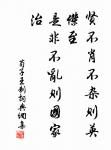 贤不肖不杂则英
杰至
是非不乱则国家
治
荀子王制词典网集